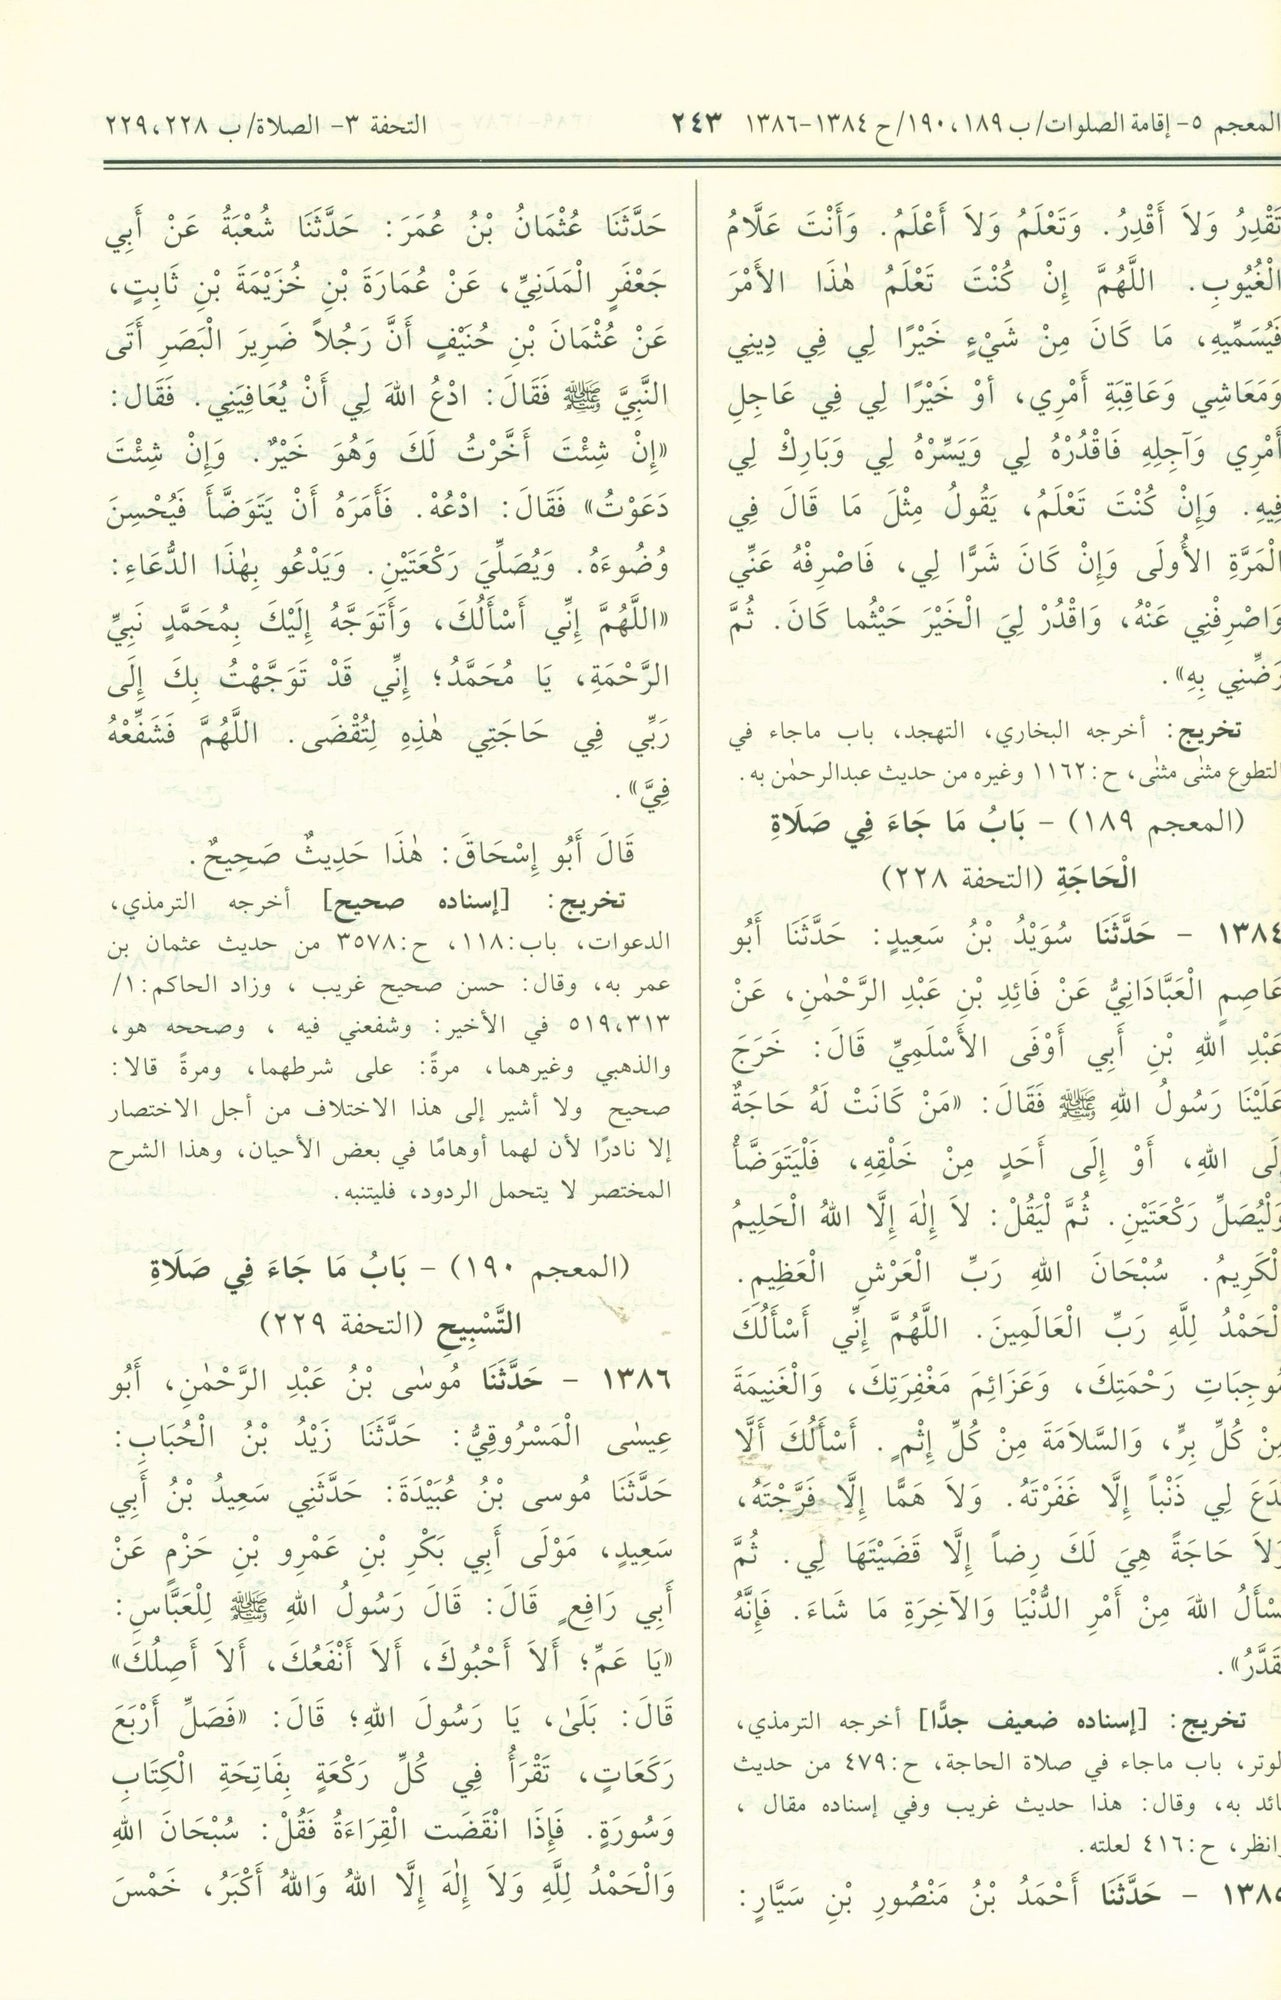 المعجم ٥- إقامة الصلوات/ ب ١٨٩، ١٩٠/ ح ١٣٨٤-١٣٨٦ ٢٤٣ التحفة ٣- الصلاة/ ب ٢٢٨، ٢٢٩
تَقْدِرُ وَلاَ أَقْدِرُ. وَتَعْلَمُ وَلاَ أَعْلَمُ. وَأَنْتَ عَلَّامُ
الْغُيُوبِ. اللَّهُمَّ إِنْ كُنْتَ تَعْلَمُ هٰذَا الأَمْرَ
فَيُسَمِّيهِ، مَا كَانَ مِنْ شَيْءٍ خَيْرًا لِي فِي دِينِي
وَمَعَاشِي وَعَاقِبَةِ أَمْرِي، أوْ خَيْرًا لِي فِي عَاجِلِ
أَمْرِي وَآجِلِهِ فَاقْدُرْهُ لِي وَيَسِّرْهُ لِي وَبَارِكْ لِي
فِيهِ. وَإِنْ كُنْتَ تَعْلَمُ، يَقُولُ مِثْلَ مَا قَالَ فِي
الْمَرَّةِ الأُولَى وَإِنْ كَانَ شَرًّا لِي، فَاصْرِفْهُ عَنِّي
وَاصْرِفْنِي عَنْهُ، وَاقْدُرْ لِيَ الْخَيْرَ حَيْثُما كَانَ. ثُمَّ
رَضِّنِي بِهِ».
تخريج: أخرجه البخاري، التهجد، باب ماجاء في
التطوع مثنٰى مثنٰى، ح:١١٦٢ وغيره من حديث عبدالرحمٰن به.
(المعجم ١٨٩) - بَابُ مَا جَاءَ فِي صَلَاةِ
الْحَاجَةِ (التحفة ٢٢٨)
١٣٨٤ - حَدَّثَنَا سُوَيْدُ بْنُ سَعِيدٍ: حَدَّثَنَا أَبُو
عَاصِمٍ الْعَبَّادَانِيُّ عَنْ فَائِدِ بْنِ عَبْدِ الرَّحْمٰنِ، عَنْ
عَبْدِ اللهِ بْنِ أَبِي أَوْفَى الأَسْلَمِيِّ قَالَ: خَرَجَ
عَلَيْنَا رَسُولُ اللهِ ﷺ فَقَالَ: «مَنْ كَانَتْ لَهُ حَاجَةٌ
إِلَى اللهِ، أَوْ إِلَى أَحَدٍ مِنْ خَلْقِهِ، فَلْيَتَوَضَّأْ
وَلْيُصَلِّ رَكْعَتَيْنِ. ثُمَّ لْيَقُلْ: لاَ إِلٰهَ إِلَّا اللهُ الْحَلِيمُ
الْكَرِيمُ. سُبْحَانَ اللهِ رَبِّ الْعَرْشِ الْعَظِيمِ.
الْحَمْدُ لِلَّهِ رَبِّ الْعَالَمِينَ. اللَّهُمَّ إِنِّي أَسْأَلُكَ
مُوجِبَاتِ رَحْمَتِكَ، وَعَزَائِمَ مَغْفِرَتِكَ، وَالْغَنِيمَةَ
مِنْ كُلِّ بِرٍّ، وَالسَّلاَمَةَ مِنْ كُلِّ إِثْمٍ. أَسْأَلُكَ أَلَّا
تَدَعَ لِي ذَنْباً إِلَّا غَفَرْتَهُ. وَلاَ هَمًّا إِلَّا فَرَّجْتَهُ،
وَلاَ حَاجَةً هِيَ لَكَ رِضاً إِلَّا قَضَيْتَهَا لِي. ثُمَّ
يَسْأَلُ اللهَ مِنْ أَمْرِ الدُّنْيَا وَالآخِرَةِ مَا شَاءَ. فَإِنَّهُ
يُقَدَّرُ».
تخريج: [إسناده ضعيف جدًّا] أخرجه الترمذي،
الوتر، باب ماجاء في صلاة الحاجة، ح:٤٧٩ من حديث
فائد به، وقال: هذا حديث غريب وفي إسناده مقال ،
وانظر، ح:٤١٦ لعلته.
١٣٨٥ - حَدَّثَنَا أَحْمَدُ بْنُ مَنْصُورِ بْنِ سَيَّارٍ:
حَدَّثَنَا عُثْمَانُ بْنُ عُمَرَ: حَدَّثَنَا شُعْبَةُ عَنْ أَبِي
جَعْفَرٍ الْمَدَنِيِّ، عَنْ عُمَارَةَ بْنِ خُزَيْمَةَ بْنِ ثَابِتٍ،
عَنْ عُثْمَانَ بْنِ حُنَيْفٍ أَنَّ رَجُلاً ضَرِيرَ الْبَصَرِ أَتَى
النَّبِيَّ ﷺ فَقَالَ: ادْعُ اللهَ لِي أَنْ يُعَافِيَنِي. فَقَال:
«إِنْ شِئْتَ أَخَّرْتُ لَكَ وَهُوَ خَيْرٌ. وَإِنْ شِئْتَ
دَعَوْتُ» فَقَالَ: ادْعُهْ. فَأَمَرَهُ أَنْ يَتَوَضَّأَ فَيُحْسِنَ
وُضُوءَهُ. وَيُصَلِّيَ رَكْعَتَيْنِ. وَيَدْعُو بِهٰذَا الدُّعَاءِ:
«اللَّهُمَّ إِنِّي أَسْأَلُكَ، وَأَتَوَجَّهُ إِلَيْكَ بِمُحَمَّدٍ نَبِيِّ
الرَّحْمَةِ، يَا مُحَمَّدُ؛ إِنِّي قَدْ تَوَجَّهْتُ بِكَ إِلَى
رَبِّي فِي حَاجَتِي هٰذِهِ لِتُقْضَى. اللَّهُمَّ فَشَفِّعْهُ
فِيَّ».
قَالَ أَبُو إِسْحَاقَ: هٰذَا حَدِيثٌ صَحِيحٌ.
تخريج: [إسناده صحيح] أخرجه الترمذي،
الدعوات، باب:١١٨، ح:٣٥٧٨ من حديث عثمان بن
عمر به، وقال: حسن صحيح غريب ، وزاد الحاكم:١/
٥١٩،٣١٣ في الأخير: وشفعني فيه ، وصححه هو،
والذهبي وغيرهما، مرةً: على شرطهما، ومرةً قالا:
صحيح ولا أشير إلى هذا الاختلاف من أجل الاختصار
إلا نادرًا لأن لهما أوهامًا في بعض الأحيان، وهذا الشرح
المختصر لا يتحمل الردود، فليتنبه.
(المعجم ١٩٠) - بَابُ مَا جَاءَ فِي صَلَاةِ
التَّسْبِيحِ (التحفة ٢٢٩)
١٣٨٦ - حَدَّثَنَا مُوسٰى بْنُ عَبْدِ الرَّحْمٰنِ، أَبُو
عِيسٰى الْمَسْرُوقِيُّ: حَدَّثَنَا زَيْدُ بْنُ الْحُبَابِ:
حَدَّثَنَا مُوسى بْنُ عُبَيْدَةَ: حَدَّثَنِي سَعِيدُ بْنُ أَبِي
سَعِيدٍ، مَوْلَى أَبِي بَكْرِ بْنِ عَمْرِو بْنِ حَزْمٍ عَنْ
أَبِي رَافِعٍ قَالَ: قَالَ رَسُولُ اللهِ ﷺ لِلْعَبَّاسِ:
«يَا عَمِّ؛ أَلاَ أَحْبُوكَ، أَلاَ أَنْفَعُكَ، أَلاَ أَصِلُكَ»
قَالَ: بَلَىٰ، يَا رَسُولَ اللهِ؛ قَالَ: «فَصَلِّ أَرْبَعَ
رَكَعَاتٍ، تَقْرَأُ فِي كُلِّ رَكْعَةٍ بِفَاتِحَةِ الْكِتَابِ
وَسُورَةٍ. فَإِذَا انْقَضَت الْقِرَاءَةُ فَقُلْ: سُبْحَانَ اللهِ
وَالْحَمْدُ لِلَّهِ وَلاَ إِلٰهَ إِلَّا اللهُ وَاللهُ أَكْبَرُ، خَمْسَ